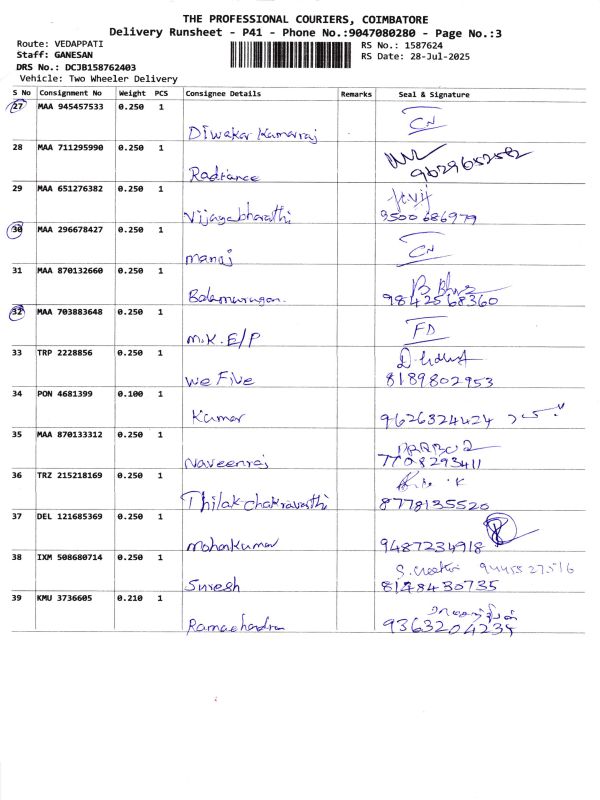 THE PROFESSIONAL COURIERS, COIMBATORE
Delivery Runsheet - P41 - Phone No.:9047080280 - Page No.:3
Route: VEDAPPATI
RS No.: 1587624
Staff: GANESAN
RS Date: 28-Jul-2025
DRS No.: DCJB158762403
Vehicle: Two Wheeler Delivery
S No Consignment No Weight PCS Consignee Details Remarks Seal & Signature
27 MAA 945457533 0.250 1
Diwakar Kamarraj CN
28 MAA 711295990 0.250 1
Radiance 9629652582
29 MAA 651276382 0.250 1
Vijayabharathi 9500686979
30 MAA 296678427 0.250 1
manoj CN
31 MAA 870132660 0.250 1
Balamurugan. 9842568360
32 MAA 703883648 0.250 1
M.K. E/P FD
33 TRP 2228856 0.250 1
We Five 8189802953
34 PON 4681399 0.100 1
Kumar 9626324424
35 MAA 870133312 0.250 1
Naveenraj 7708293411
36 TRZ 215218169 0.250 1
Thilak-chakravarthi 8778135520
37 DEL 121685369 0.250 1
Mohankumar 9487234918
38 IXM 508680714 0.250 1
Suresh 8148430735
39 KMU 3736605 0.210 1
Ramachandra 9363204234